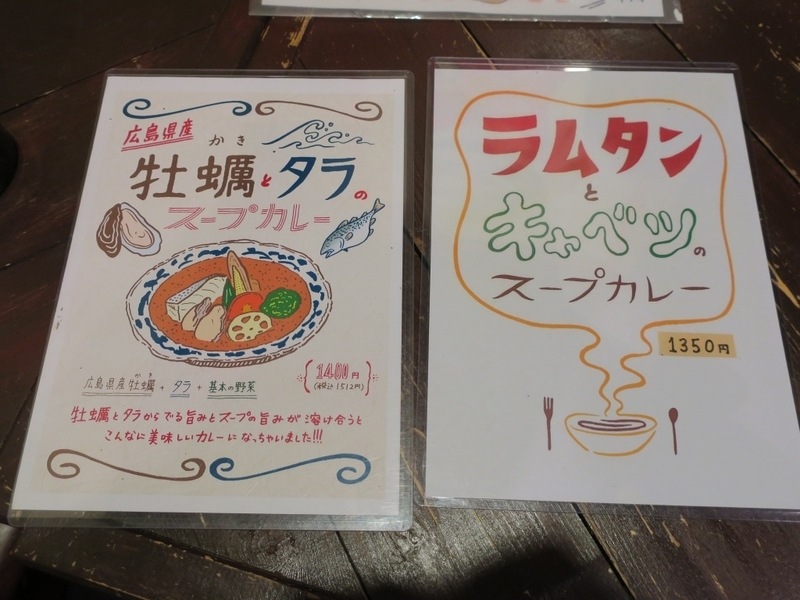 広島県産
かき
牡蠣とタラの
スープカレー
広島県産牡蠣 + タラ + 基本の野菜
かき
1400円
(税込1512円)
牡蠣とタラからでる旨みとスープの旨みが溶け合うと
こんなに美味しいカレーになっちゃいました!!!
ラムタン
と
キャベツの
スープカレー
1350円